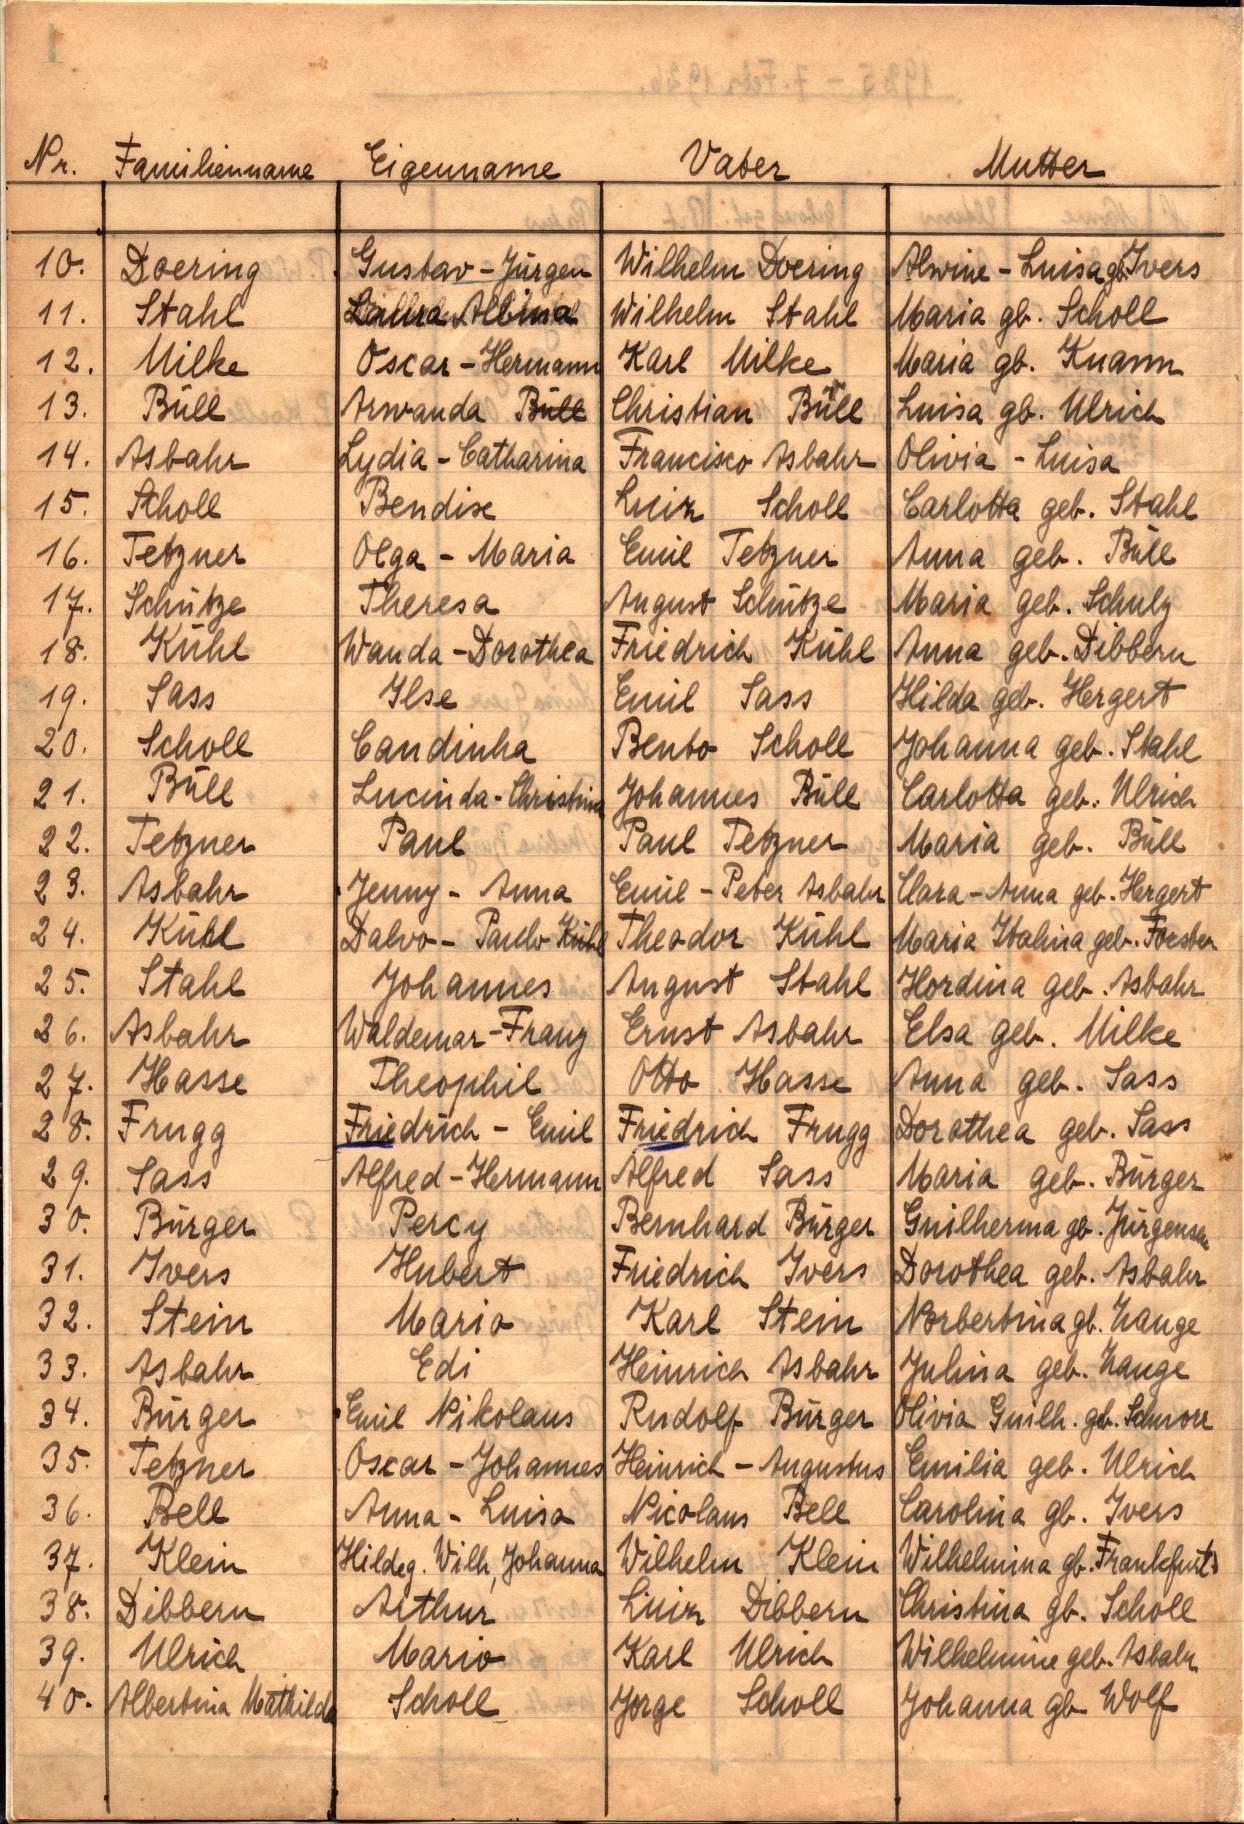 Nr. Familienname Eigenname Vater Mutter
10. Doering Gustav - Jürgen Wilhelm Doering Alwine - Luisa gb. Ivers
11. Stahl Laura Albina Wilhelm Stahl Maria gb. Scholl
12. Milke Oscar - Hermann Karl Milke Maria gb. Knamm
13. Büll Arwanda Büll Christian Büll Luisa gb. Ulrich
14. Asbahr Lydia - Catharina Francisco Asbahr Olivia - Luisa
15. Scholl Bendise Luiz Scholl Carlotta geb. Stahl
16. Tetzner Olga - Maria Emil Tetzner Anna geb. Büll
17. Schütze Theresa August Schütze Maria geb. Schulz
18. Kühl Wanda - Dorothea Friedrich Kühl Anna geb. Dibbern
19. Sass Ilse Emil Sass Hilda geb. Hergert
20. Scholl Candinha Bento Scholl Johanna geb. Stahl
21. Büll Lucinda - Christina Johannes Büll Carlotta geb. Ulrich
22. Tetzner Paul Paul Tetzner Maria geb. Büll
23. Asbahr Jenny - Anna Emil - Peter Asbahr Clara - Anna geb. Hergert
24. Kühl Dalvo - Paulo Kühl Theodor Kühl Maria Italina geb. Foester
25. Stahl Johannes August Stahl Hordina geb. Asbahr
26. Asbahr Waldemar - Franz Ernst Asbahr Elsa geb. Milke
27. Hasse Theophil Otto Hasse Anna geb. Sass
28. Frugg Friedrich - Emil Friedrich Frugg Dorothea geb. Sass
29. Sass Alfred - Hermann Alfred Sass Maria geb. Bürger
30. Bürger Percy Bernhard Bürger Guilherma gb. Jürgensen
31. Ivers Hubert Friedrich Ivers Dorothea geb. Asbahr
32. Stein Mario Karl Stein Norbertina gb. Lange
33. Asbahr Edi Heinrich Asbahr Julina geb. Lange
34. Bürger Emil Nikolaus Rudolf Bürger Olivia Guilh. gb. Schnorr
35. Tetzner Oscar - Johannes Heinrich - Augustus Emilia geb. Ulrich
36. Bell Anna - Luisa Nicolaus Bell Carolina gb. Ivers
37. Klein Hildeg. Wilh, Johanna Wilhelm Klein Wilhelmina gb. Frankfurt
38. Dibbern Arthur Luiz Dibbern Christina gb. Scholl
39. Ulrich Mario Karl Ulrich Wilhelmine geb. Asbahr
40. Albertina Mathilda Scholl Jorge Scholl Johanna gb Wolf